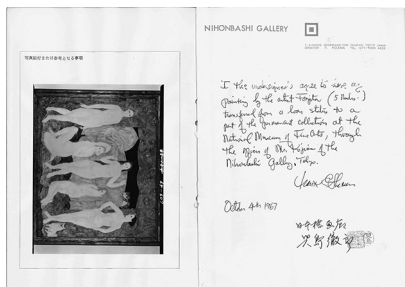 写真貼付または参考となる事項
NIHONBASHI GALLERY
I the undersigned agree to have my
painting by the artist Foujita (5 Nudes)
transferred from a loan status to a
part of the permanent collection at the
National Museum of Fine Arts, through
the offices of Mr. Kojima of the
Nihonbashi Gallery, Tokyo.
October 4th 1967
日本橋画廊